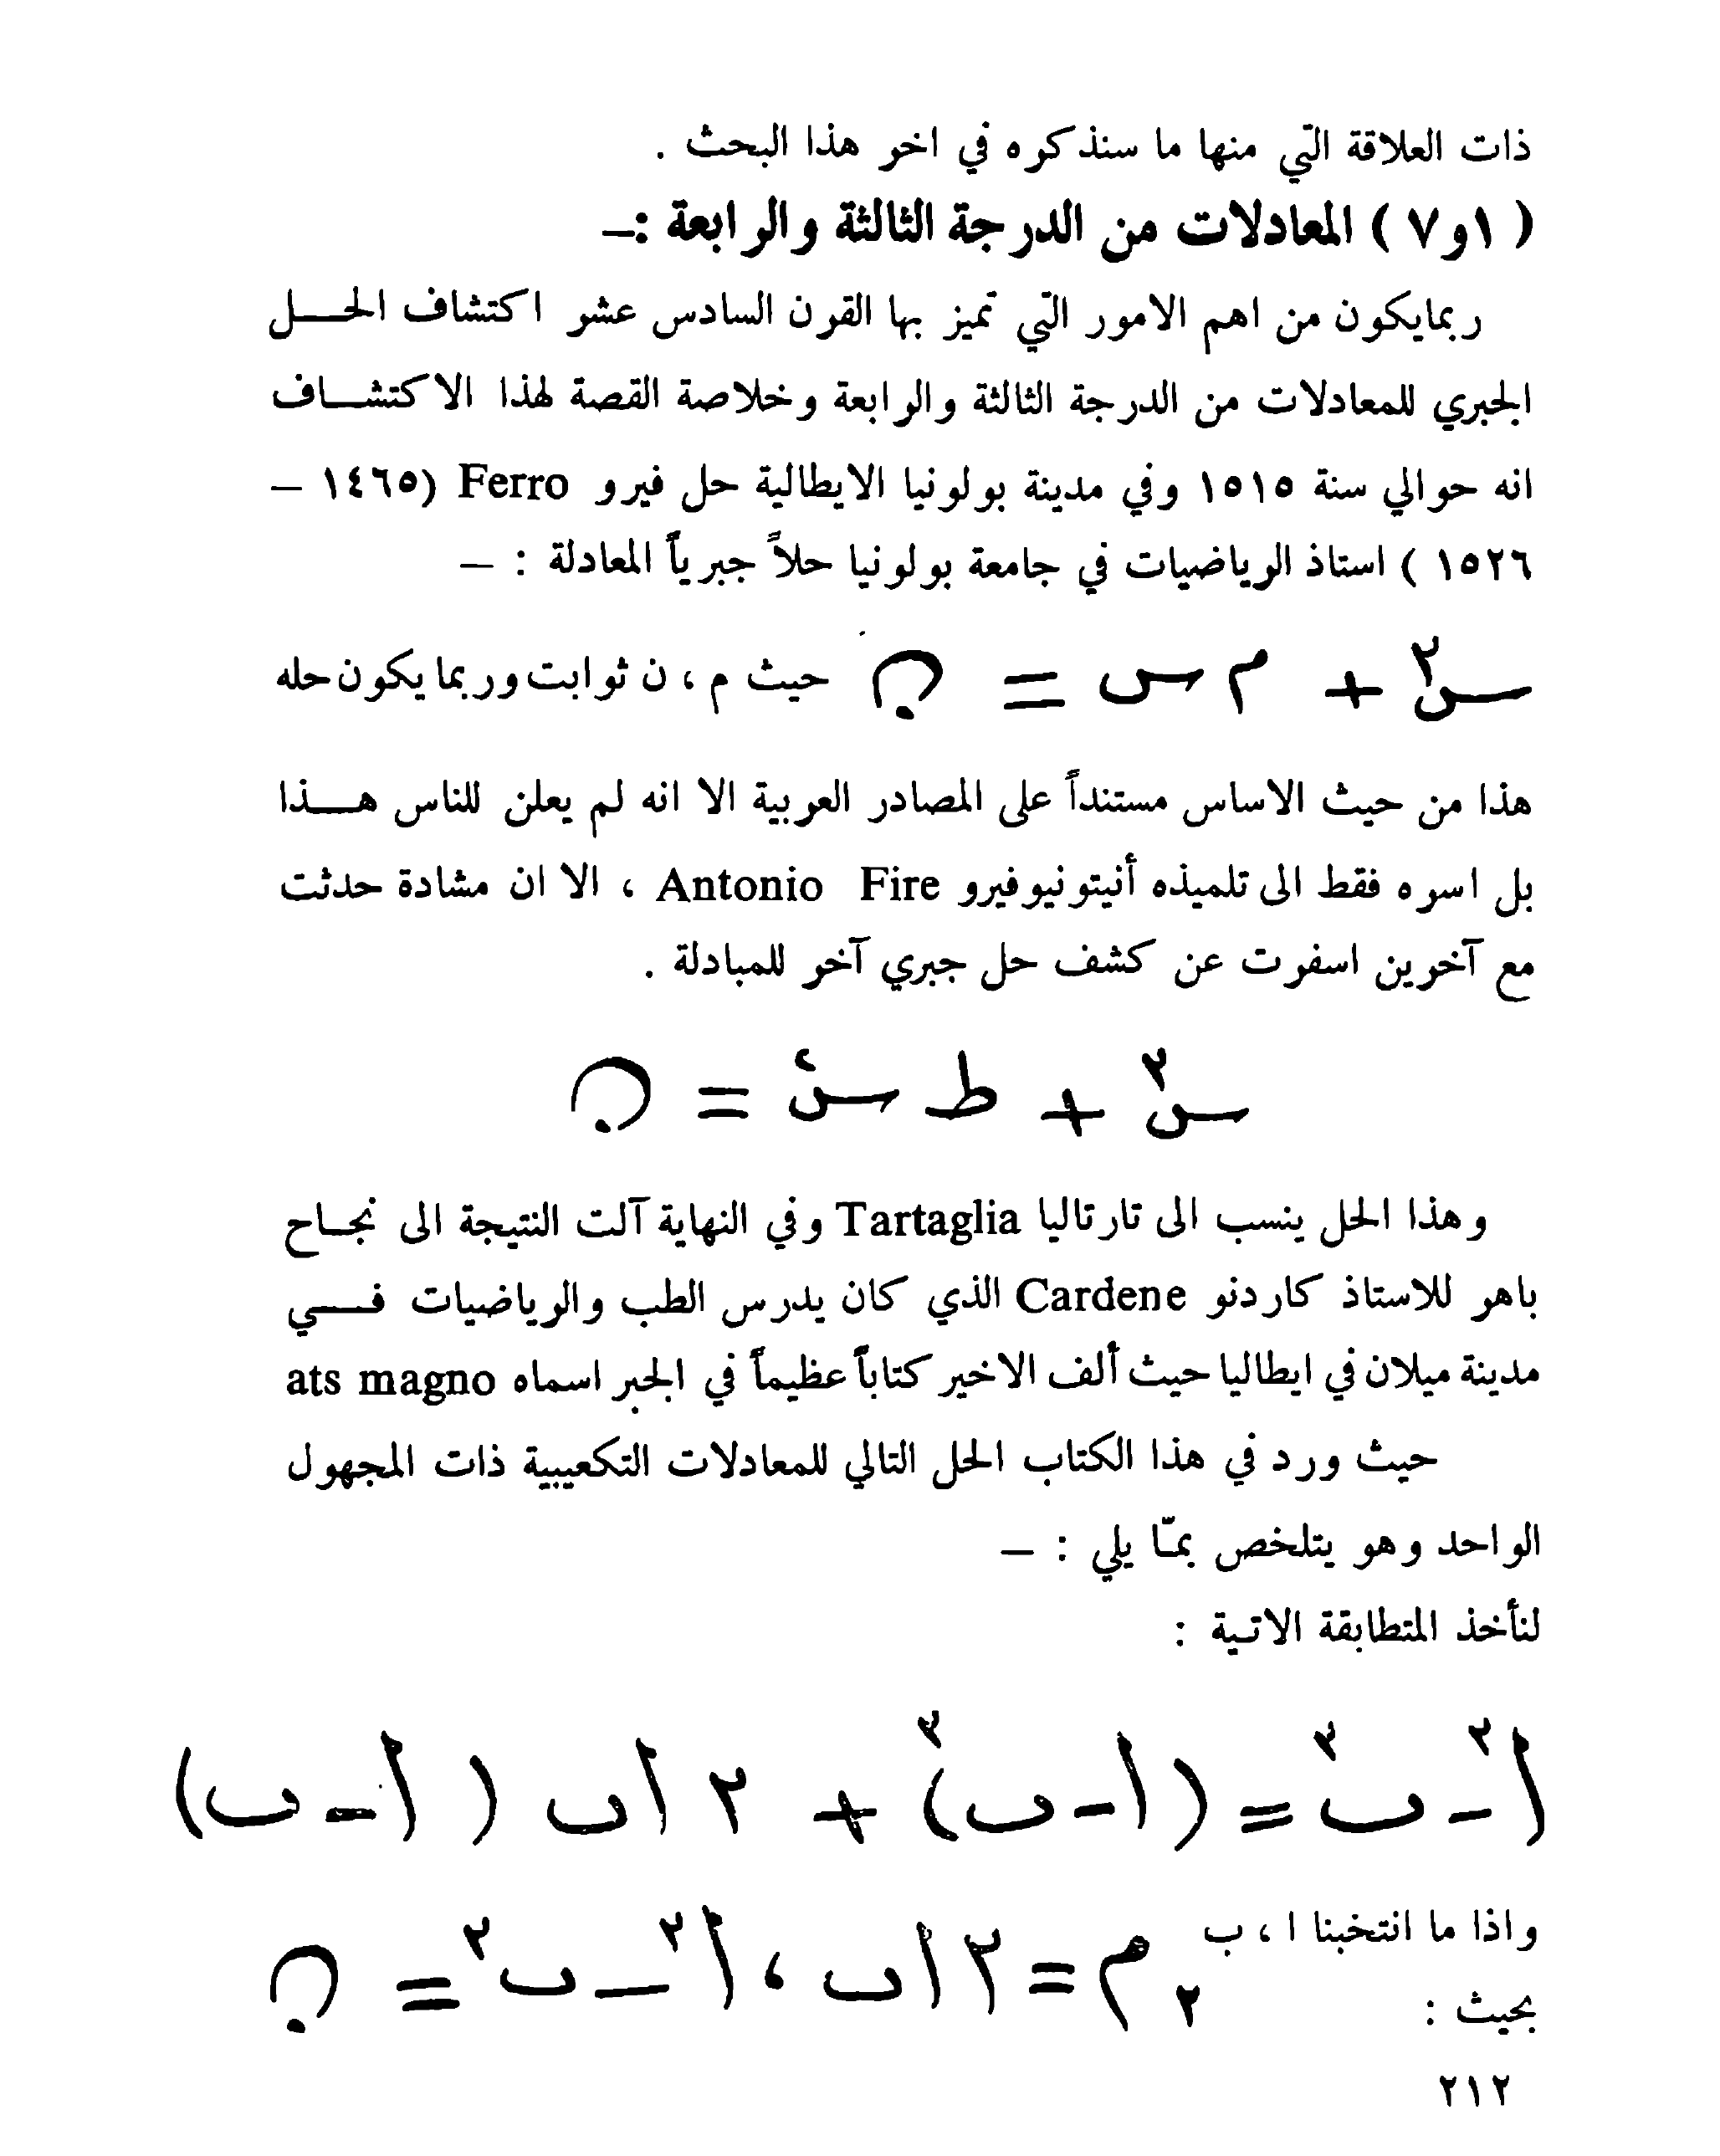 ذات العلاقة التي منها ما سنذكره في اخر هذا البحث .
( ١و٧ ) المعادلات من الدرجة الثالثة والرابعة :–
ربمايكون من اهم الامور التي تميز بها القرن السادس عشر اكتشاف الحـــل
الجبري للمعادلات من الدرجة الثالثة والرابعة وخلاصة القصة لهذا الاكتشــاف
انه حوالي سنة ١٥١٥ وفي مدينة بولونيا الايطالية حل فيرو Ferro (١٤٦٥ –
١٥٢٦ ) استاذ الرياضيات في جامعة بولونيا حلاً جبرياً المعادلة : –
س٣ + م س = ن حيث م ، ن ثوابت وربما يكون حله
هذا من حيث الاساس مستنداً على المصادر العربية الا انه لم يعلن للناس هـــذا
بل اسره فقط الى تلميذه أنيتونيوفيرو Antonio Fire ، الا ان مشادة حدثت
مع آخرين اسفرت عن كشف حل جبري آخر للمبادلة .
س٣ + ط س٢ = ن
وهذا الحل ينسب الى تارتاليا Tartaglia وفي النهاية آلت النتيجة الى نجــاح
باهر للاستاذ كاردنو Cardene الذي كان يدرس الطب والرياضيات فـــي
مدينة ميلان في ايطاليا حيث ألف الاخير كتاباً عظيماً في الجبر اسماه ats magno
حيث ورد في هذا الكتاب الحل التالي للمعادلات التكعيبية ذات المجهول
الواحد وهو يتلخص بمّا يلي : –
لنأخذ المتطابقة الاتـية :
أ٣ – ب٣ = (أ – ب)٣ + ٣ أ ب (أ – ب)
واذا ما انتخبنا ا ، ب
بحيث : ٢ م = ٣ أ ب ، أ٣ – ب٣ = ن
٢١٢